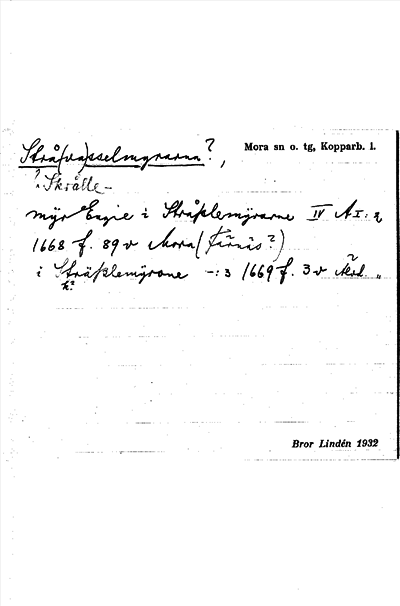 Strå(va)sselmyrarna?, Mora sn o. tg, Kopparb. l.
? Skrålle-
myr Engie i Stråslemÿrarne IV AI: 2
1668 f. 89 v Mora (Färnäs?)
i Sträslemÿrone -: 3 1669 f. 3 v
k?
Bror Lindén 1932